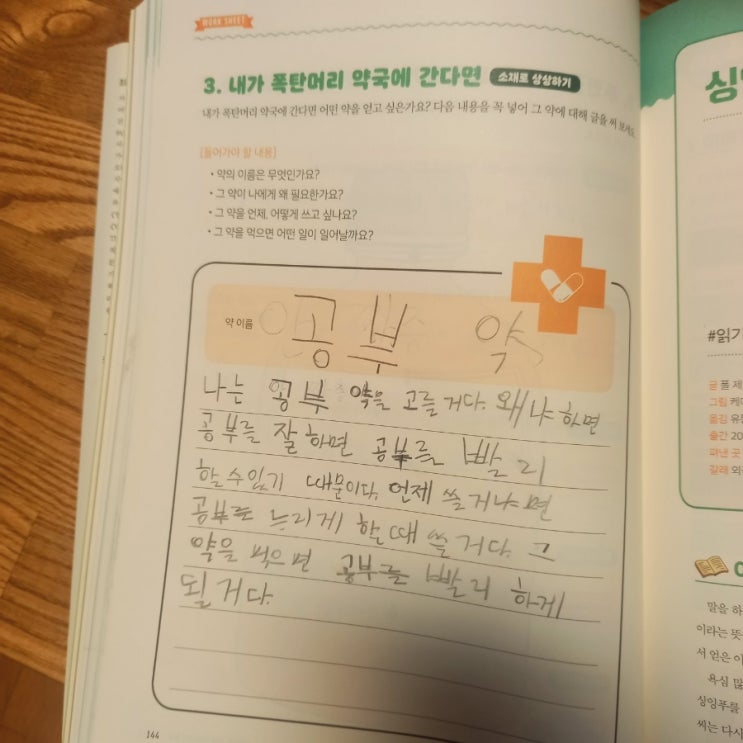 WORK SHEET
3. 내가 폭탄머리 약국에 간다면 소재로 상상하기
내가 폭탄머리 약국에 간다면 어떤 약을 얻고 싶은가요? 다음 내용을 꼭 넣어 그 약에 대해 글을 써 보세요.
[들어가야 할 내용]
• 약의 이름은 무엇인가요?
• 그 약이 나에게 왜 필요한가요?
• 그 약을 언제, 어떻게 쓰고 싶나요?
• 그 약을 먹으면 어떤 일이 일어날까요?
약 이름 공부 약
나는 공부 약을 고를 거다. 왜냐하면
공부를 잘하면 공부를 빨리
할 수 있기 때문이다. 언제 쓸거냐면
공부를 느리게 할 때 쓸 거다. 그
약을 먹으면 공부를 빨리 하게
될 거다.
144
#읽기
글 폴 제
그림 케이
옮김 유진
출간 20
펴낸 곳
갈래 외
말을 하
이라는 뜻
서 얻은 이
욕심 많
싱잉푸를
씩는 다시